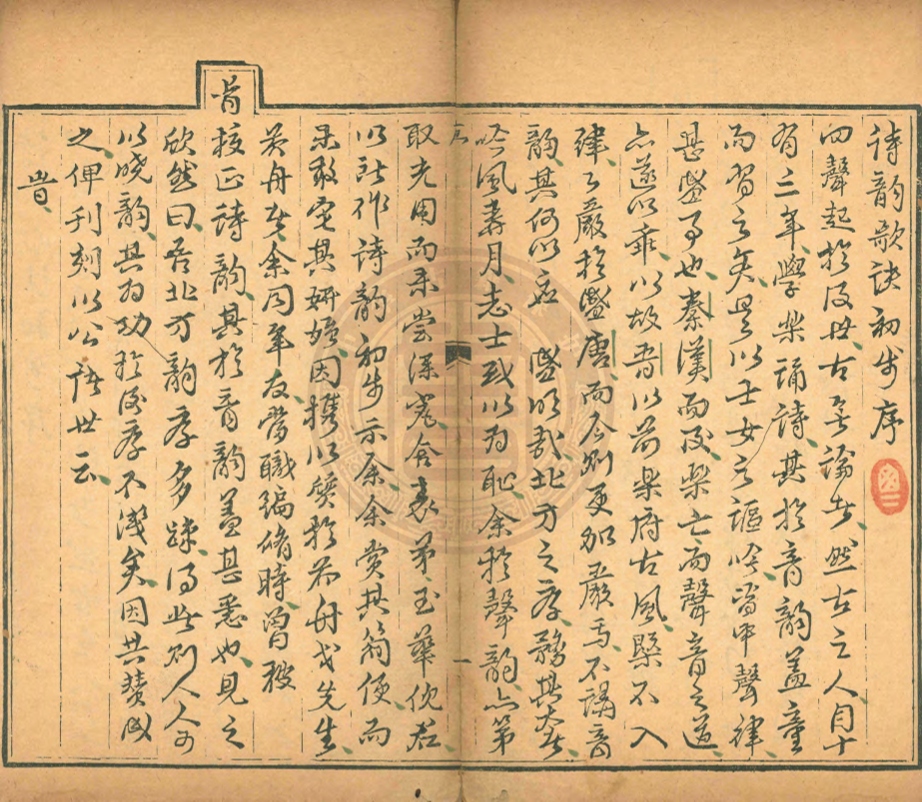 詩韻歌訣初步序
四聲起於後世古無論者然古之人自十
有三年學樂誦詩其於音韻蓋童
而習之矣是以士女之謳吟皆中聲律
甚盛事也秦漢而後樂亡而聲音之道
亦遂以乖以故吾以前樂府古風槩不入
律々嚴於盛唐而今則更加嚴焉不講音
韻其何以 盛明哉北方之學務其大者
吟風弄月志士或以為恥余於聲韻亦第
取充用而未嘗深究舍表弟玉華倪君
以所作詩韻初步示余余賞其簡便而
未敢定其妍媸因攜以質於芥舟戈先生
芥舟者余同年友嘗職編脩時曾被
旨校正詩韻其於音韻蓋甚悉也見之
欣然曰吾北方韻學多疎得此則人人可
以曉韻其為功於後學不淺矣因共贊成
之俾刊刻以公諸世云
峕